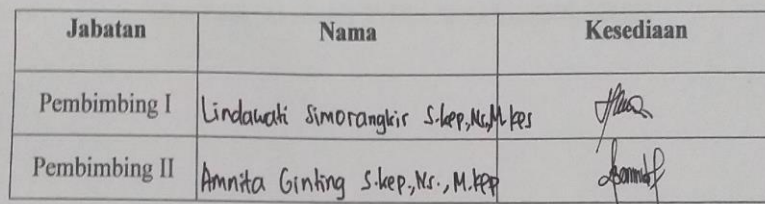 Jabatan Nama Kesediaan
Pembimbing I Lindawati Simorangkir S.kep,Ns,M.kes
Pembimbing II Amnita Ginting S.kep,Ns., M.kep